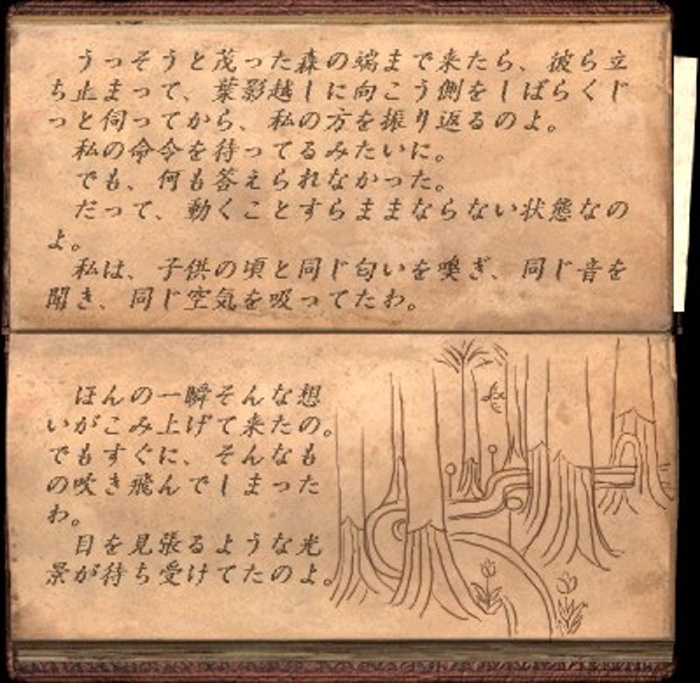 うっそうと茂った森の端まで来たら、彼ら立
ち止まって、葉影越しに向こう側をしばらくじ
っと伺ってから、私の方を振り返るのよ。
私の命令を待ってるみたいに。
でも、何も答えられなかった。
だって、動くことすらままならない状態なの
よ。
私は、子供の頃と同じ匂いを嗅ぎ、同じ音を
聞き、同じ空気を吸ってたわ。
ほんの一瞬そんな想
いがこみ上げて来たの。
でもすぐに、そんなも
の吹き飛んでしまった
わ。
目を見張るような光
景が待ち受けてたのよ。